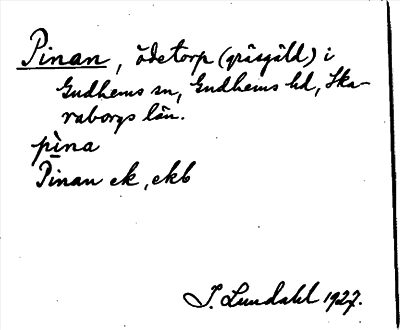 Pinan, ödetorp (gräsgäld) i
Gudhems sn, Gudhems hd, Ska-
raborgs län.
pìna
Pinan ek, ekb
I. Lundahl 1927.